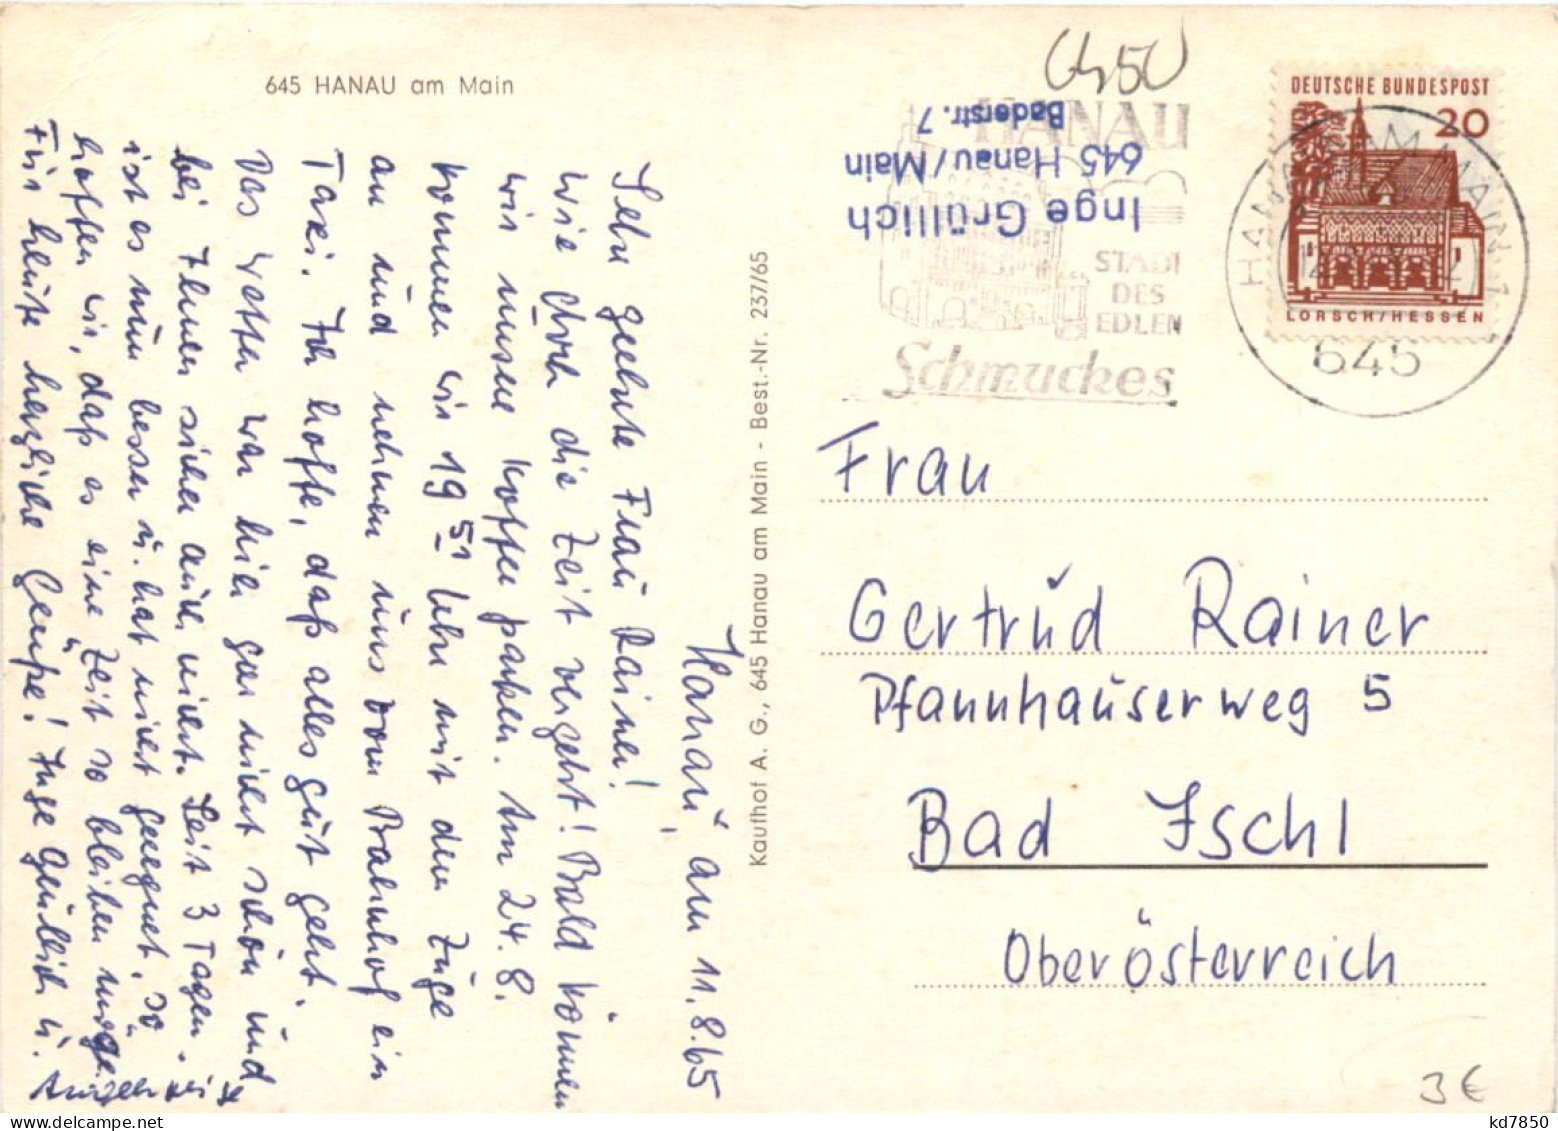 645 HANAU am Main
Hanau, am 11.8.65
Sehr geehrte Frau Rainer!
Wie doch die Zeit vergeht! Bald können
wir unsere Koffer packen. Am 24.8.
kommen wir 19 51 Uhr mit dem Zuge
an und nehmen uns vom Bahnhof ein
Taxi. Ich hoffe, daß alles gut geht.
Das Wetter war hier gar nicht schön und
bei Ihnen sicher auch nicht. Seit 3 Tagen
ist es nun besser u. hat nicht geregnet, so
hoffen wir, daß es eine Zeit so bleiben möge.
Für heute herzliche Grüße! Inge Grüllich u.
Kaufhof A. G., 645 Hanau am Main - Best.-Nr. 237/65
6450
Inge Grüllich
645 Hanau/Main
Baderstr. 7
HANAU
STADT
DES
EDLEN
Schmuckes
DEUTSCHE BUNDESPOST
20
LORSCH/HESSEN
HANAU AM MAIN 1
645
Frau
Gertrud Rainer
Pfannhauserweg 5
Bad Ischl
Oberösterreich
3€
kd7850